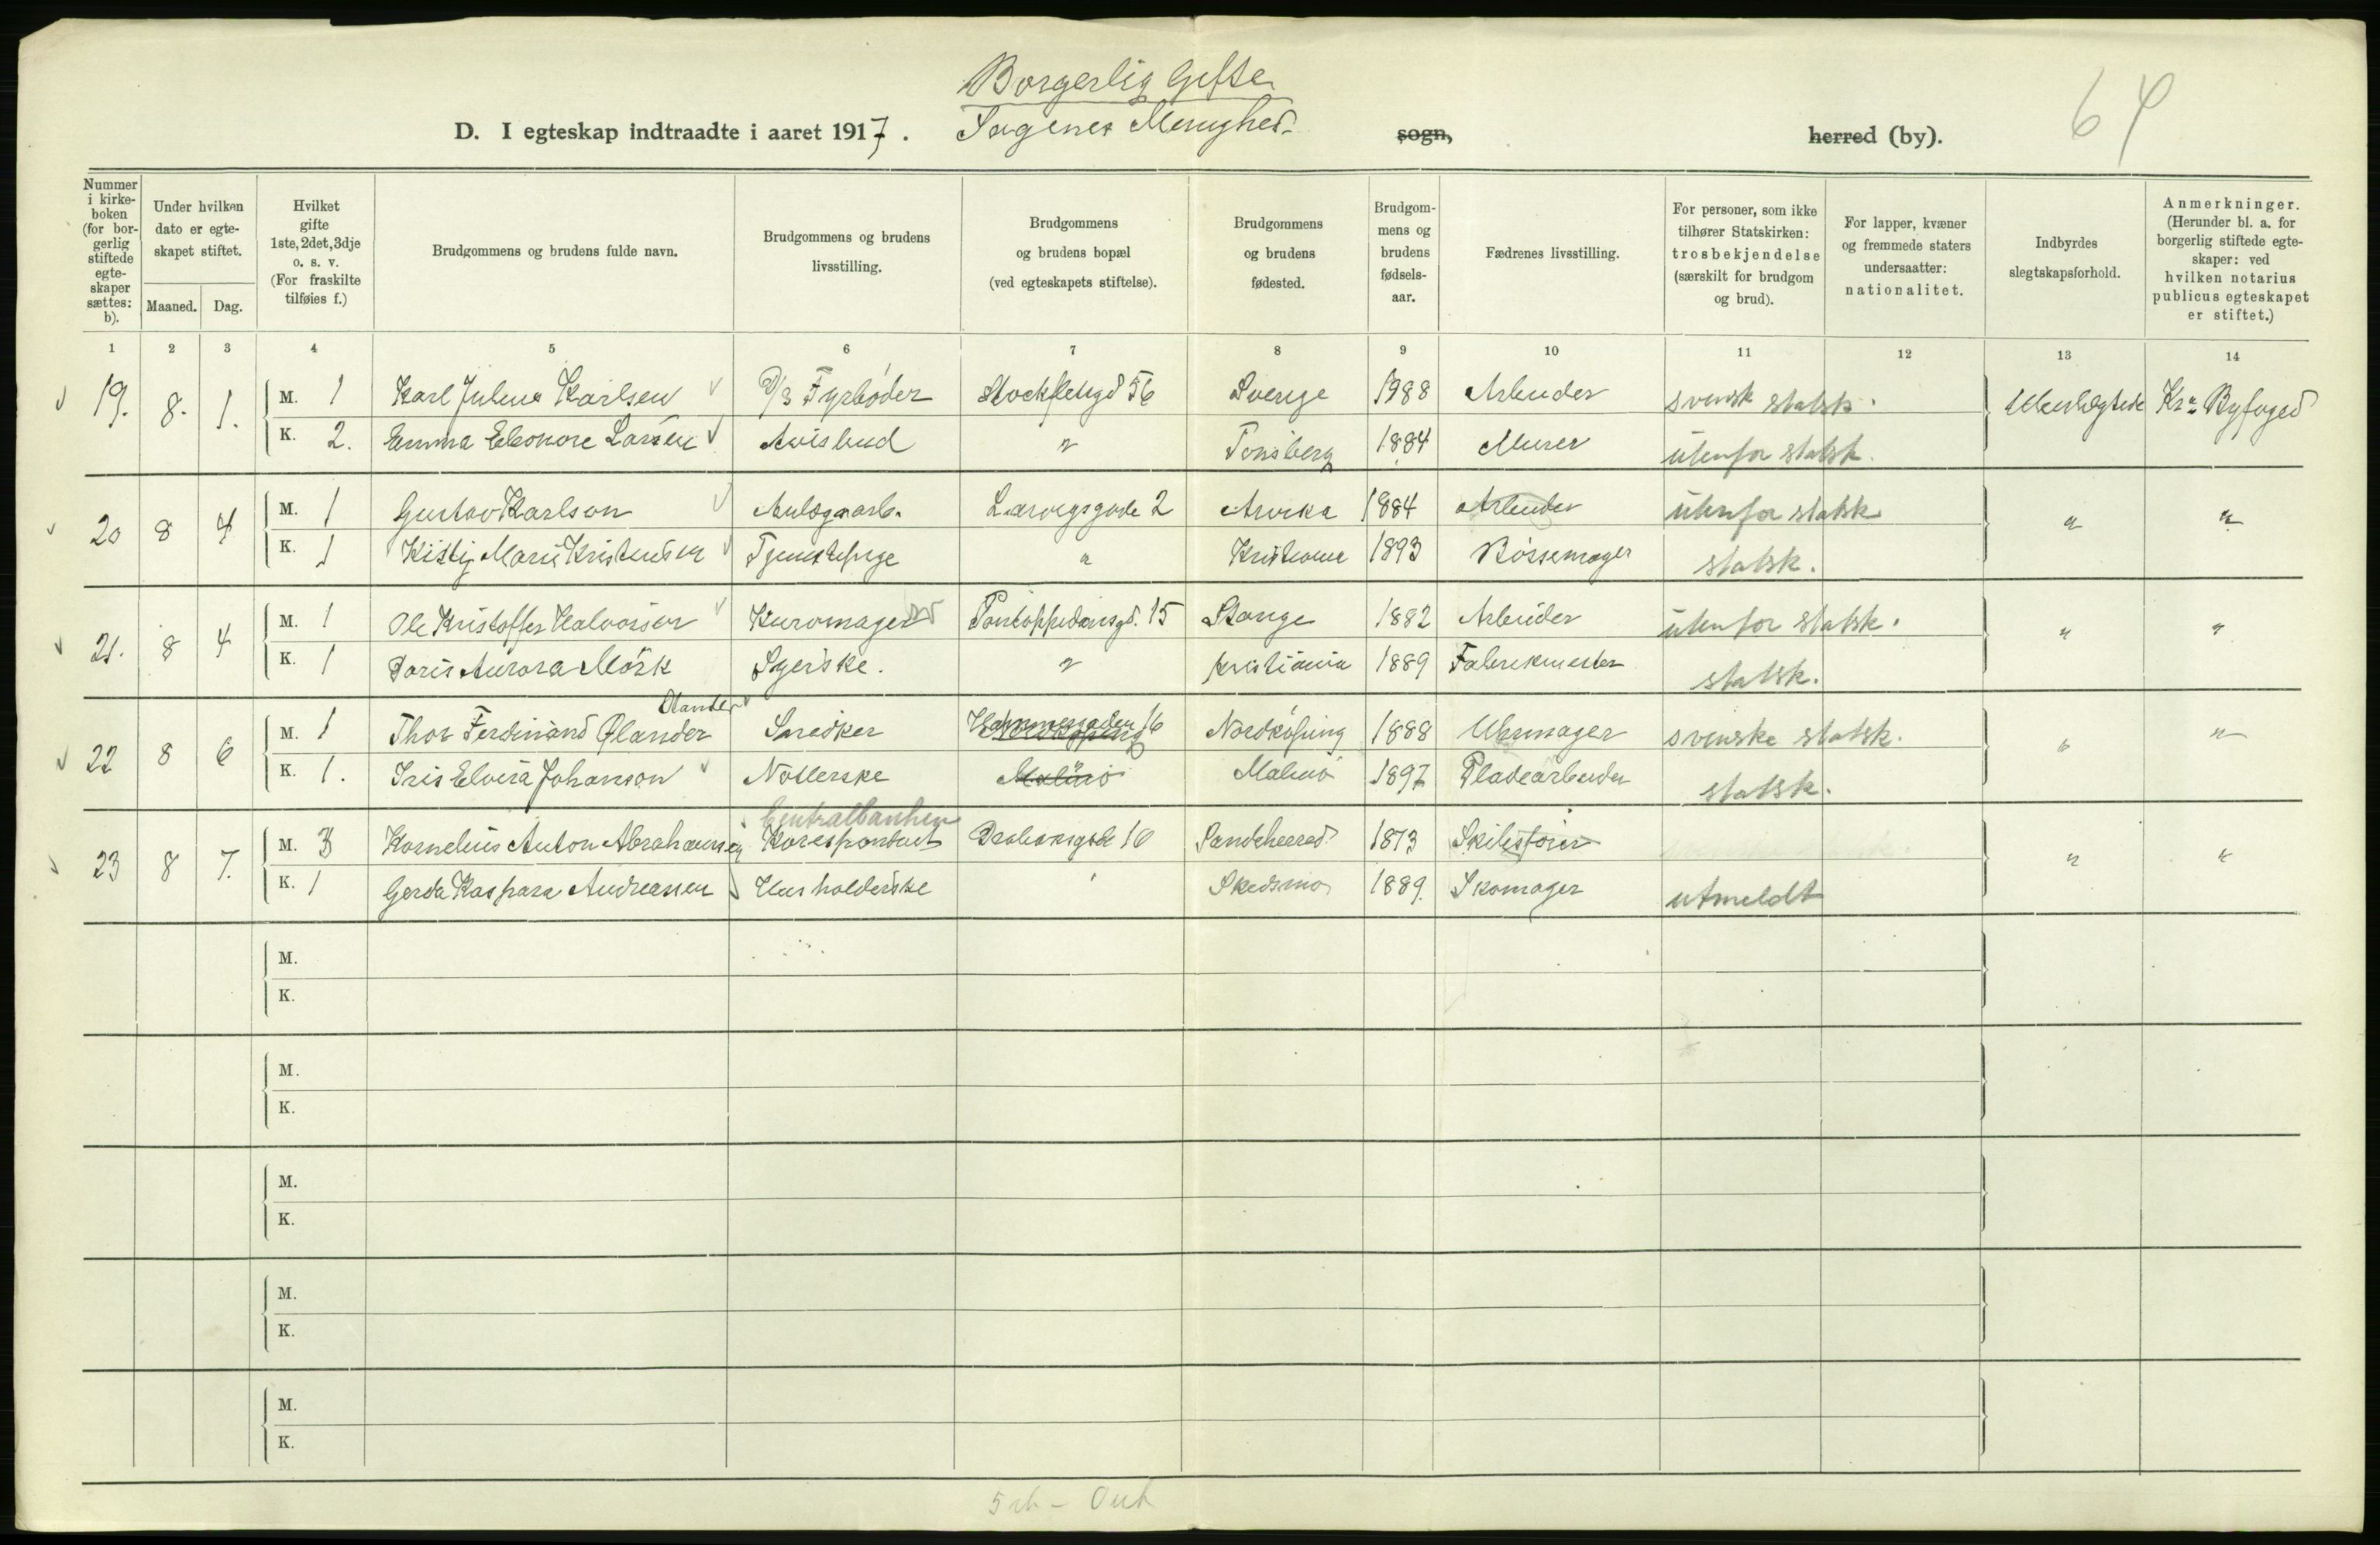 Borgerlig Gifte
D. I egteskap indtraadte i aaret 1917. Sagenes Menighed. sogn, herred (by). 64
Nummer i kirkeboken (for borgerlig stiftede egteskaper sættes: b).
Under hvilken dato er egteskapet stiftet. Maaned. Dag.
Hvilket gifte 1ste, 2det, 3dje o. s. v. (For fraskilte tilføies f.)
Brudgommens og brudens fulde navn.
Brudgommens og brudens livsstilling.
Brudgommens og brudens bopæl (ved egteskapets stiftelse).
Brudgommens og brudens fødested.
Brudgommens og brudens fødselsaar.
Fædrenes livsstilling.
For personer, som ikke tilhører Statskirken: trosbekjendelse (særskilt for brudgom og brud).
For lapper, kvæner og fremmede staters undersaatter: nationalitet.
Indbyrdes slegtskapsforhold.
Anmerkninger. (Herunder bl. a. for borgerlig stiftede egteskaper: ved hvilken notarius publicus egteskapet er stiftet.)
1 2 3 4 5 6 7 8 9 10 11 12 13 14
19. 8. 1. M. 1 Karl Julius Karlsen D/S Fyrbøder Stockfletgd 56 Sverige 1988 Arbeider svensk statsk. Ubeslægtede Kra Byfoged
K. 2. Emma Eleonore Larsen Avisbud " Tønsberg 1884 Murer utenfor statsk.
20 8 4 M. 1 Gustav Karlson Anlægsarb. Larvigsgade 2 Arvika 1884 Arbeider utenfor statsk. " "
K. 1 Kitty Marie Kristensen Tjenestepige " Kristiania 1893 Bøssemager statsk.
21. 8 4 M. 1 Ole Kristoffer Halvorsen Kurvmager Pontoppidansgd. 15 Stange 1882 Arbeider utenfor statsk. " "
K. 1 Doris Aurora Mörk Syerske. " Kristiania 1889 Fabrikmester statsk.
Olander
22 8 6 M. 1 Thor Ferdinand Ølander Snedker Norrköping 16 Nordköping 1888 Uhrmager svenske statsk. " "
K. 1. Iris Elvira Johanson Nopperske Malmö Malmö 1897 Pladearbeider statsk.
Centralbanken
23 8 7. M. 3 Kornelius Anton Abrahamsen Korespondent 16 Sandeherred 1873 Skibsfører " "
K. 1 Gerda Kaspara Andreassen Husholderske " Skedsmo 1889. Skomager utmeldt
M.
K.
M.
K.
M.
K.
M.
K.
M.
K.